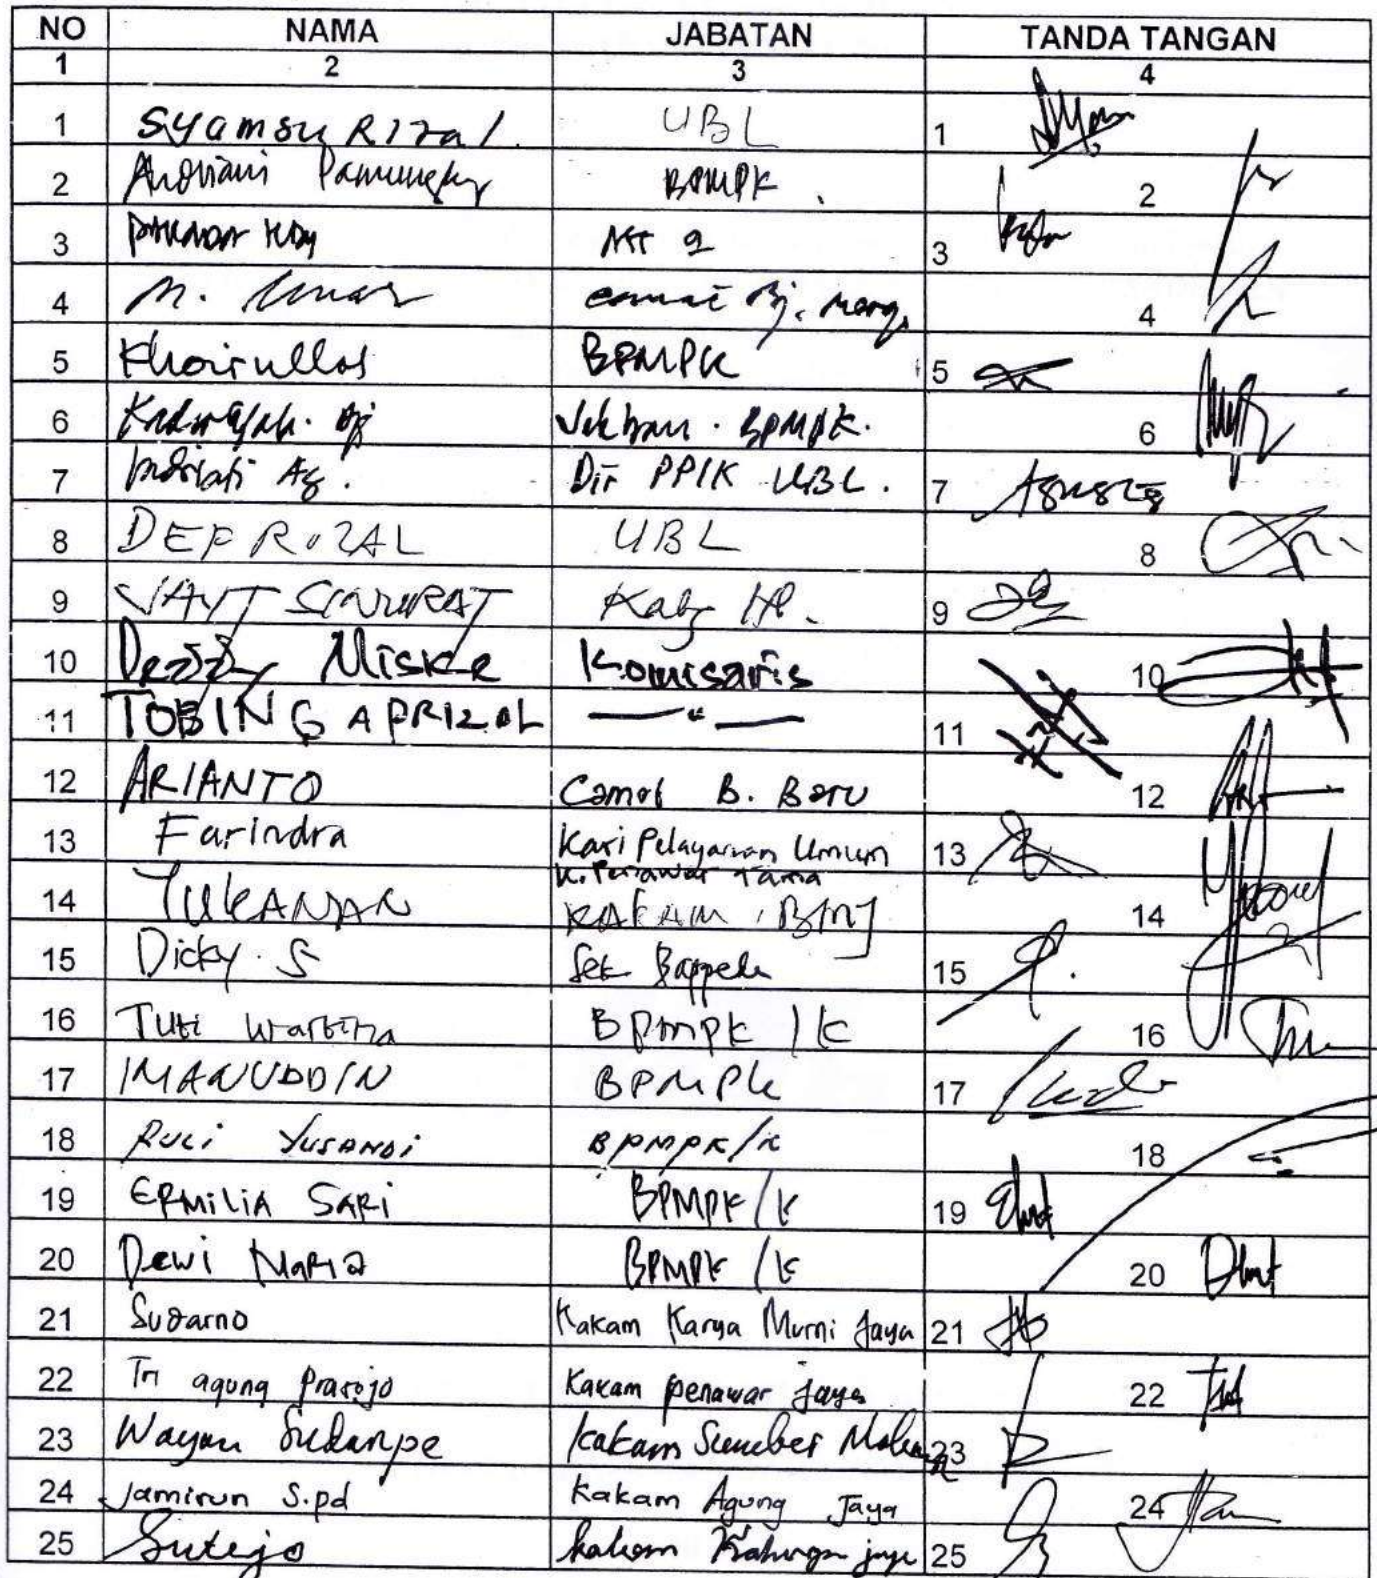 NO NAMA JABATAN TANDA TANGAN
1 2 3 4
1 Syamsu Rizal UBL 1
2 Andriani Pamungkas BPMPK 2
3 3
4 M. Umar camat Bj. Marg 4
5 Khoirullas BPMPK 5
6 BPMPK. 6
7 Indriati Ag. Dir PPIK UBL. 7
8 DEFRIZAL UBL 8
9 9
10 Miske Komisaris 10
11 TOBING APRIZAL — " — 11
12 ARIANTO Camat B. Baru 12
13 Farindra Kasi Pelayanan Umum 13
K. Penawar Tama
14 TUKANAN KAKAM BMJ 14
15 Dicky. S Sek Bappeda 15
16 Tuti BPMPK/K 16
17 IMANUDDIN BPMPK 17
18 Ruli Yusandi BPMPK/K 18
19 ERMILIA SARI BPMPK/K 19
20 Dewi Maria BPMPK/K 20
21 Sudarno Kakam Karya Murni Jaya 21
22 Tri agung Prasojo Kakam penawar jaya 22
23 Wayan Kakam 23
24 Jamirun S.pd Kakam Agung Jaya 24
25 Sutejo kakam 25